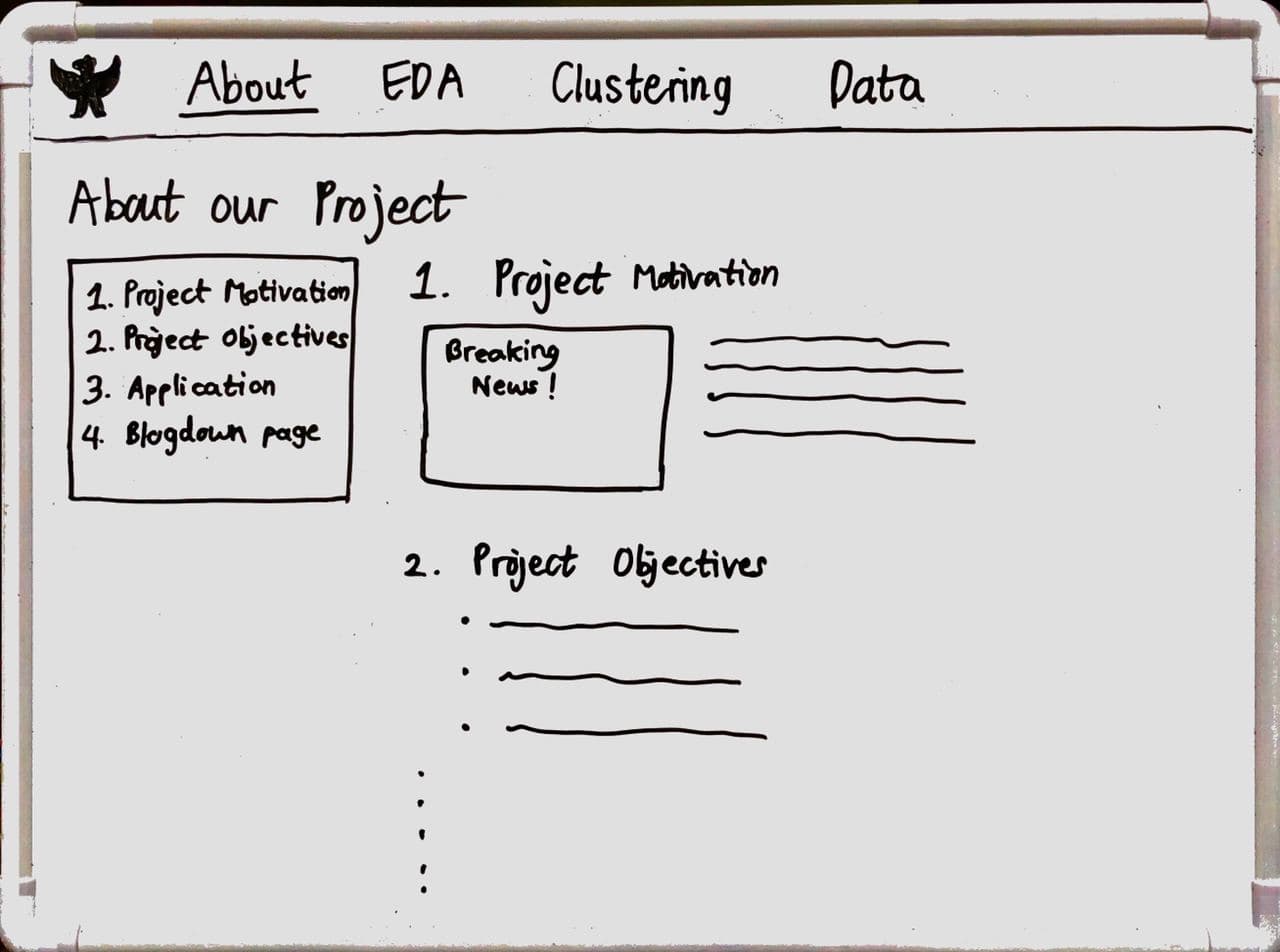 About EDA Clustering Data
About our Project
1. Project Motivation
2. Project Objectives
3. Application
4. Blogdown page
1. Project Motivation
Breaking
News!
2. Project Objectives